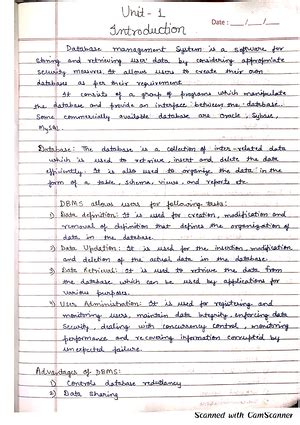 Unit - 1
Date : __/__/__
Introduction
Database Management System is a software for
storing and retrieving user data by considering appropriate
security measures. It allows users to create their own
databases as per their requirement.
It consists of a group of programs which manipulate
the database and provide an interface between the database.
Some commercially available database are Oracle, Sybase,
MySQL.
Database: The database is a collection of inter-related data
which is used to retrieve, insert and delete the data
efficiently. It is also used to organize the data in the
form of a table, schema, views, and reports etc.
DBMS allows users for following tasks:
1) Data definition: It is used for creation, modification and
removal of definition that defines the organization of
data in the database.
2) Data Updation: It is used for the insertion, modification
and deletion of the actual data in the database.
3) Data Retrieval: It is used to retrieve the data from
the database which can be used by applications for
various purposes.
4) User Administration: It is used for registering and
monitoring users, maintain data integrity, enforcing data
security, dealing with concurrency control, monitoring
performance and recovering information corrupted by
unexpected failure.
Advantages of DBMS:
1) Controls database redundancy
2) Data Sharing
Scanned with CamScanner